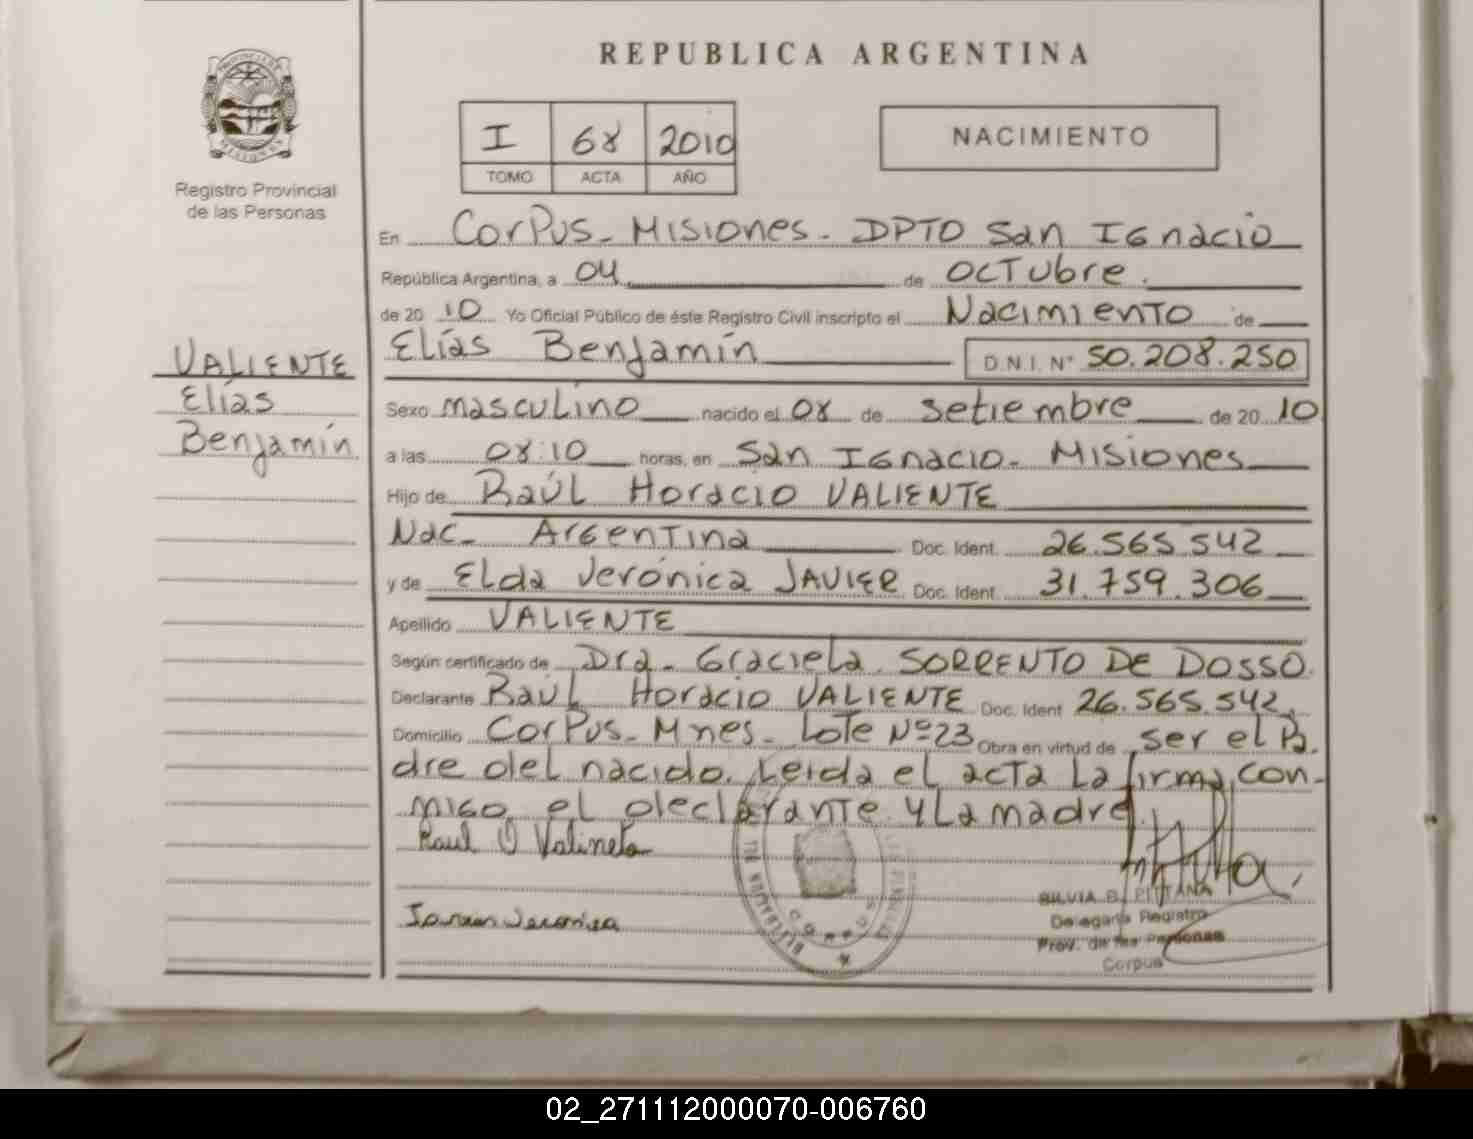 PROVINCIA DE
MISIONES
Registro Provincial
de las Personas
VALIENTE
Elías
Benjamín
REPUBLICA ARGENTINA
I 68 2010
TOMO ACTA AÑO
NACIMIENTO
En Corpus - Misiones - DPTO San Ignacio
República Argentina, a 04 de Octubre
de 20 10 Yo Oficial Público de éste Registro Civil inscripto el Nacimiento de
Elías Benjamín D.N.I. Nº 50.208.250
Sexo masculino nacido el 08 de setiembre de 20 10
a las 08:10 horas, en San Ignacio - Misiones
Hijo de Raúl Horacio VALIENTE
Nac. Argentina Doc. Ident. 26.565.542
y de Elda Verónica JAVIER Doc. Ident. 31.759.306
Apellido VALIENTE
Según certificado de Dra. Graciela SORRENTO DE DOSSO.
Declarante Raúl Horacio VALIENTE Doc. Ident 26.565.542,
Domicilio Corpus - Mnes - Lote Nº 23 Obra en virtud de ser el Pa-
dre del nacido. Leida el acta la firma, con-
migo, el declarante y la madre.
Raul
SILVIA B. PITTANA
Delegada Registro
Prov. de las Personas
Corpus
CORPUS
02_271112000070-006760